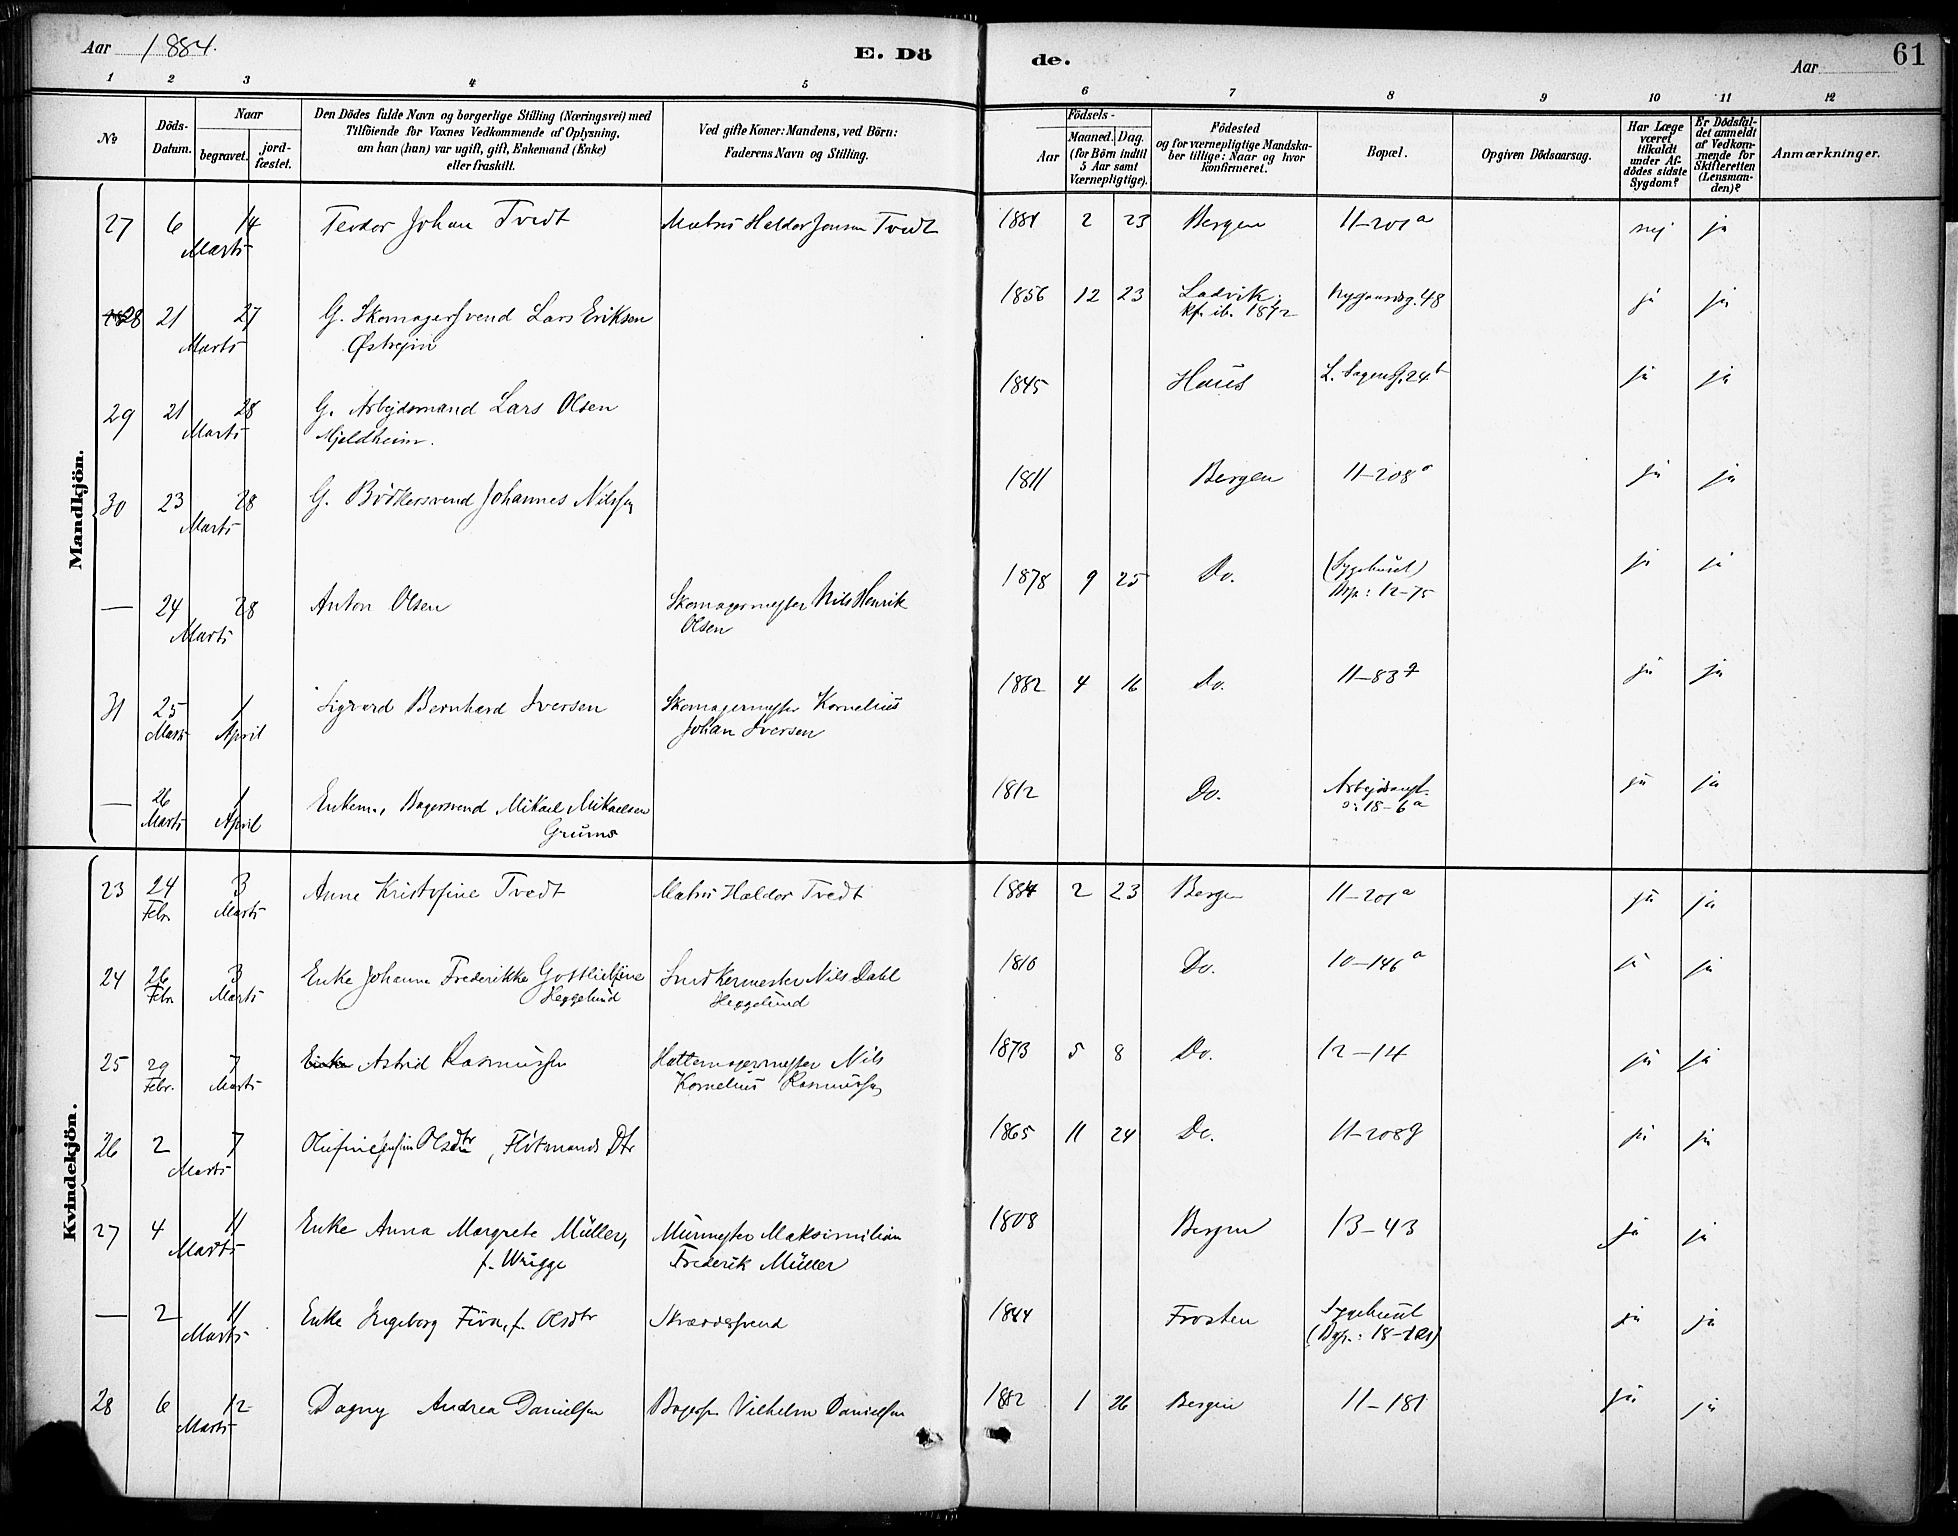 Aar 1884.
E. Dö
de.
Aar
61
1 2 3 4 5 6 7 8 9 10 11 12
No
Döds-
Datum.
Naar
begravet.
jord-
fæstet.
Den Dödes fulde Navn og borgerlige Stilling (Næringsvei) med
Tilföiende for Voxnes Vedkommende af Oplysning,
om han (hun) var ugift, gift, Enkemand (Enke)
eller fraskilt.
Ved gifte Koner: Mandens, ved Börn:
Faderens Navn og Stilling.
Födsels-
Aar
Maaned. Dag.
(for Börn indtil
5 Aar samt
Værnepligtige).
Födested
og for værnepligtige Mandska-
ber tillige: Naar og hvor
konfirmeret.
Bopæl.
Opgiven Dödsaarsag.
Har Læge
været
tilkaldt
under Af-
dödes sidste
Sygdom?
Er Dödsfal-
det anmeldt
af Vedkom-
mende for
Skifteretten
(Lensman-
den)?
Anmærkninger.
Mandkjön.
27 6 14 Teodor Johan Tvedt Matros Haldor Jonsen Tvedt 1884 2 23 Bergen 11-201a nej ja
Marts
28 21 27 G. Skomagersvend Lars Eriksen 1856 12 23 Ladvik, Nygaardsg. 48 ja ja
Marts kf. ib. 1872
29 21 28 G. Arbejdsmand Lars Olsen 1845 Haus 24b ja ja
Marts Mjeldheim.
30 23 28 G. Bödkersvend Johannes Nilssen 1811 Bergen 11-208a ja ja
Marts
— 24 28 Anton Olsen Skomagermester Nils Henrik 1878 9 25 Do. (Sygehuset) ja ja
Marts Olsen 12-75
31 25 1 Sigvard Bernhard Iversen Skomagermester Kornelius 1882 4 16 Do. 11-83 ja ja
Marts April Johan Iversen
— 26 1 Enkem., Bagersvend Mikael Mikaelsen 1812 Do. ja ja
Marts April 18-6a
Kvindekjön.
23 24 3 Anne Kristofine Tvedt Matros Haldor Tvedt 1884 2 23 Bergen 11-201a ja ja
Febr. Marts
24 26 3 Enke Johanne Frederikke Gottliebine Snedkermester Nils Dahl 1810 Do. 10-146a ja ja
Febr. Marts Heggelund Heggelund
25 29 7 Enke Astrid Rasmussen Hattemagermester Nils 1873 5 8 Do. 12-14 ja ja
Febr. Marts Kornelius Rasmussen
26 2 7 Olsdtr, Flötmands Dtr 1865 11 24 Do. 11-208g ja ja
Marts
27 4 11 Enke Anna Margrete Müller, Murmester Maksimilian 1808 Bergen 13-43 ja ja
Marts f. Wrigge Frederik Müller
— 2 11 Enke Ingeborg f. Olsdtr Skræddersvend 1844 Frosten Sygehuset ja ja
Marts
28 6 12 Dagny Andrea Danielsen Vilhelm Danielsen 1882 1 26 Bergen 11-181 ja ja
Marts